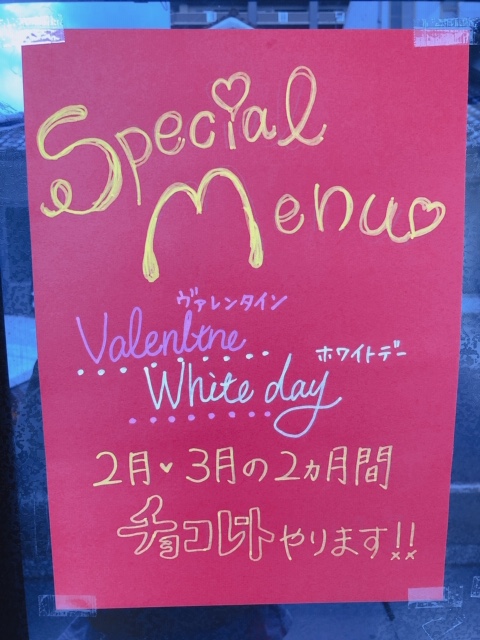 Special
Menu
ヴァレンタイン
Valentine
ホワイトデー
White day
2月♥3月の2ヵ月間
チョコレートやります!!